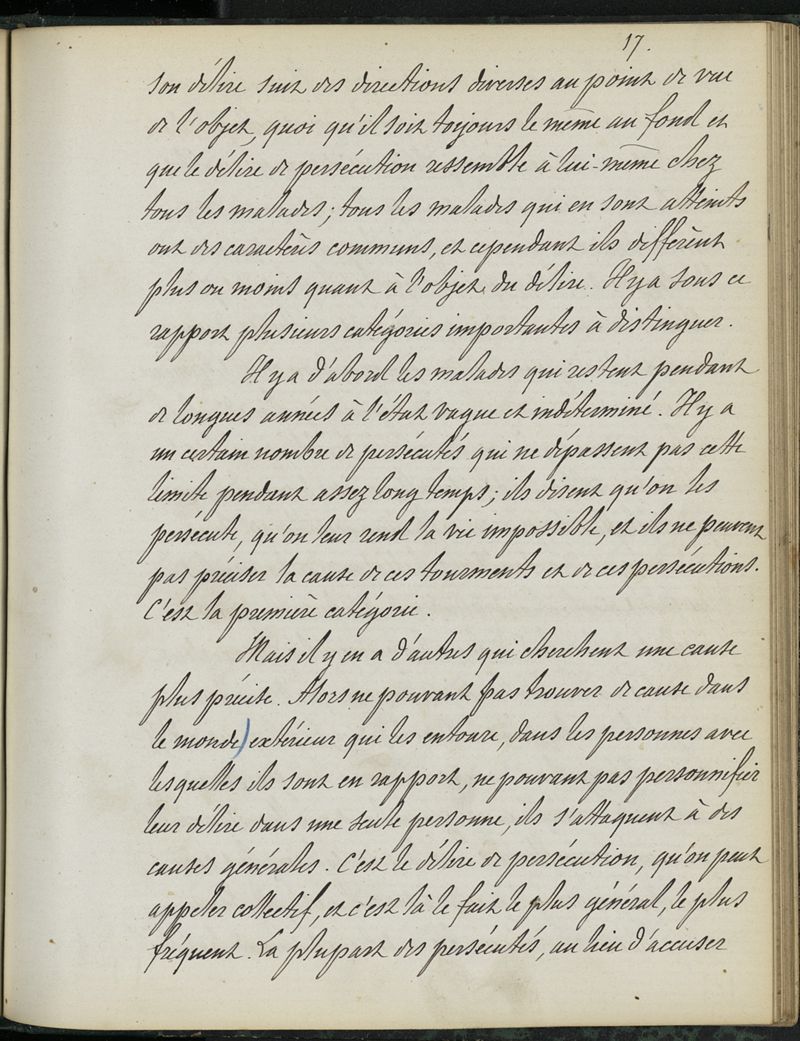 17.
son délire suit des directions diverses au point de vue
de l'objet, quoi qu'il soit toujours le même au fond et
que le délire de persécution ressemble à lui-même chez
tous les malades; tous les malades qui en sont atteints
ont des caractères communs, et cependant ils diffèrent
plus ou moins quant à l'objet du délire. Il y a sous ce
rapport plusieurs catégories importantes à distinguer.
Il y a d'abord les malades qui restent pendant
de longues années à l'état vague et indéterminé. Il y a
un certain nombre de persécutés qui ne dépassent pas cette
limite pendant assez long temps; ils disent qu'on les
persécute, qu'on leur rend la vie impossible, et ils ne peuvent
pas préciser la cause de ces tourments et de ces persécutions.
C'est la première catégorie.
Mais il y en a d'autres qui cherchent une cause
plus précise. Alors ne pouvant pas trouver de cause dans
le monde) extérieur qui les entoure, dans les personnes avec
lesquelles ils sont en rapport, ne pouvant pas personnifier
leur délire dans une seule personne, ils s'attaquent à des
causes générales. C'est le délire de persécution, qu'on peut
appeler collectif, et c'est là le fait le plus général, le plus
fréquent. La plupart des persécutés, au lieu d'accuser